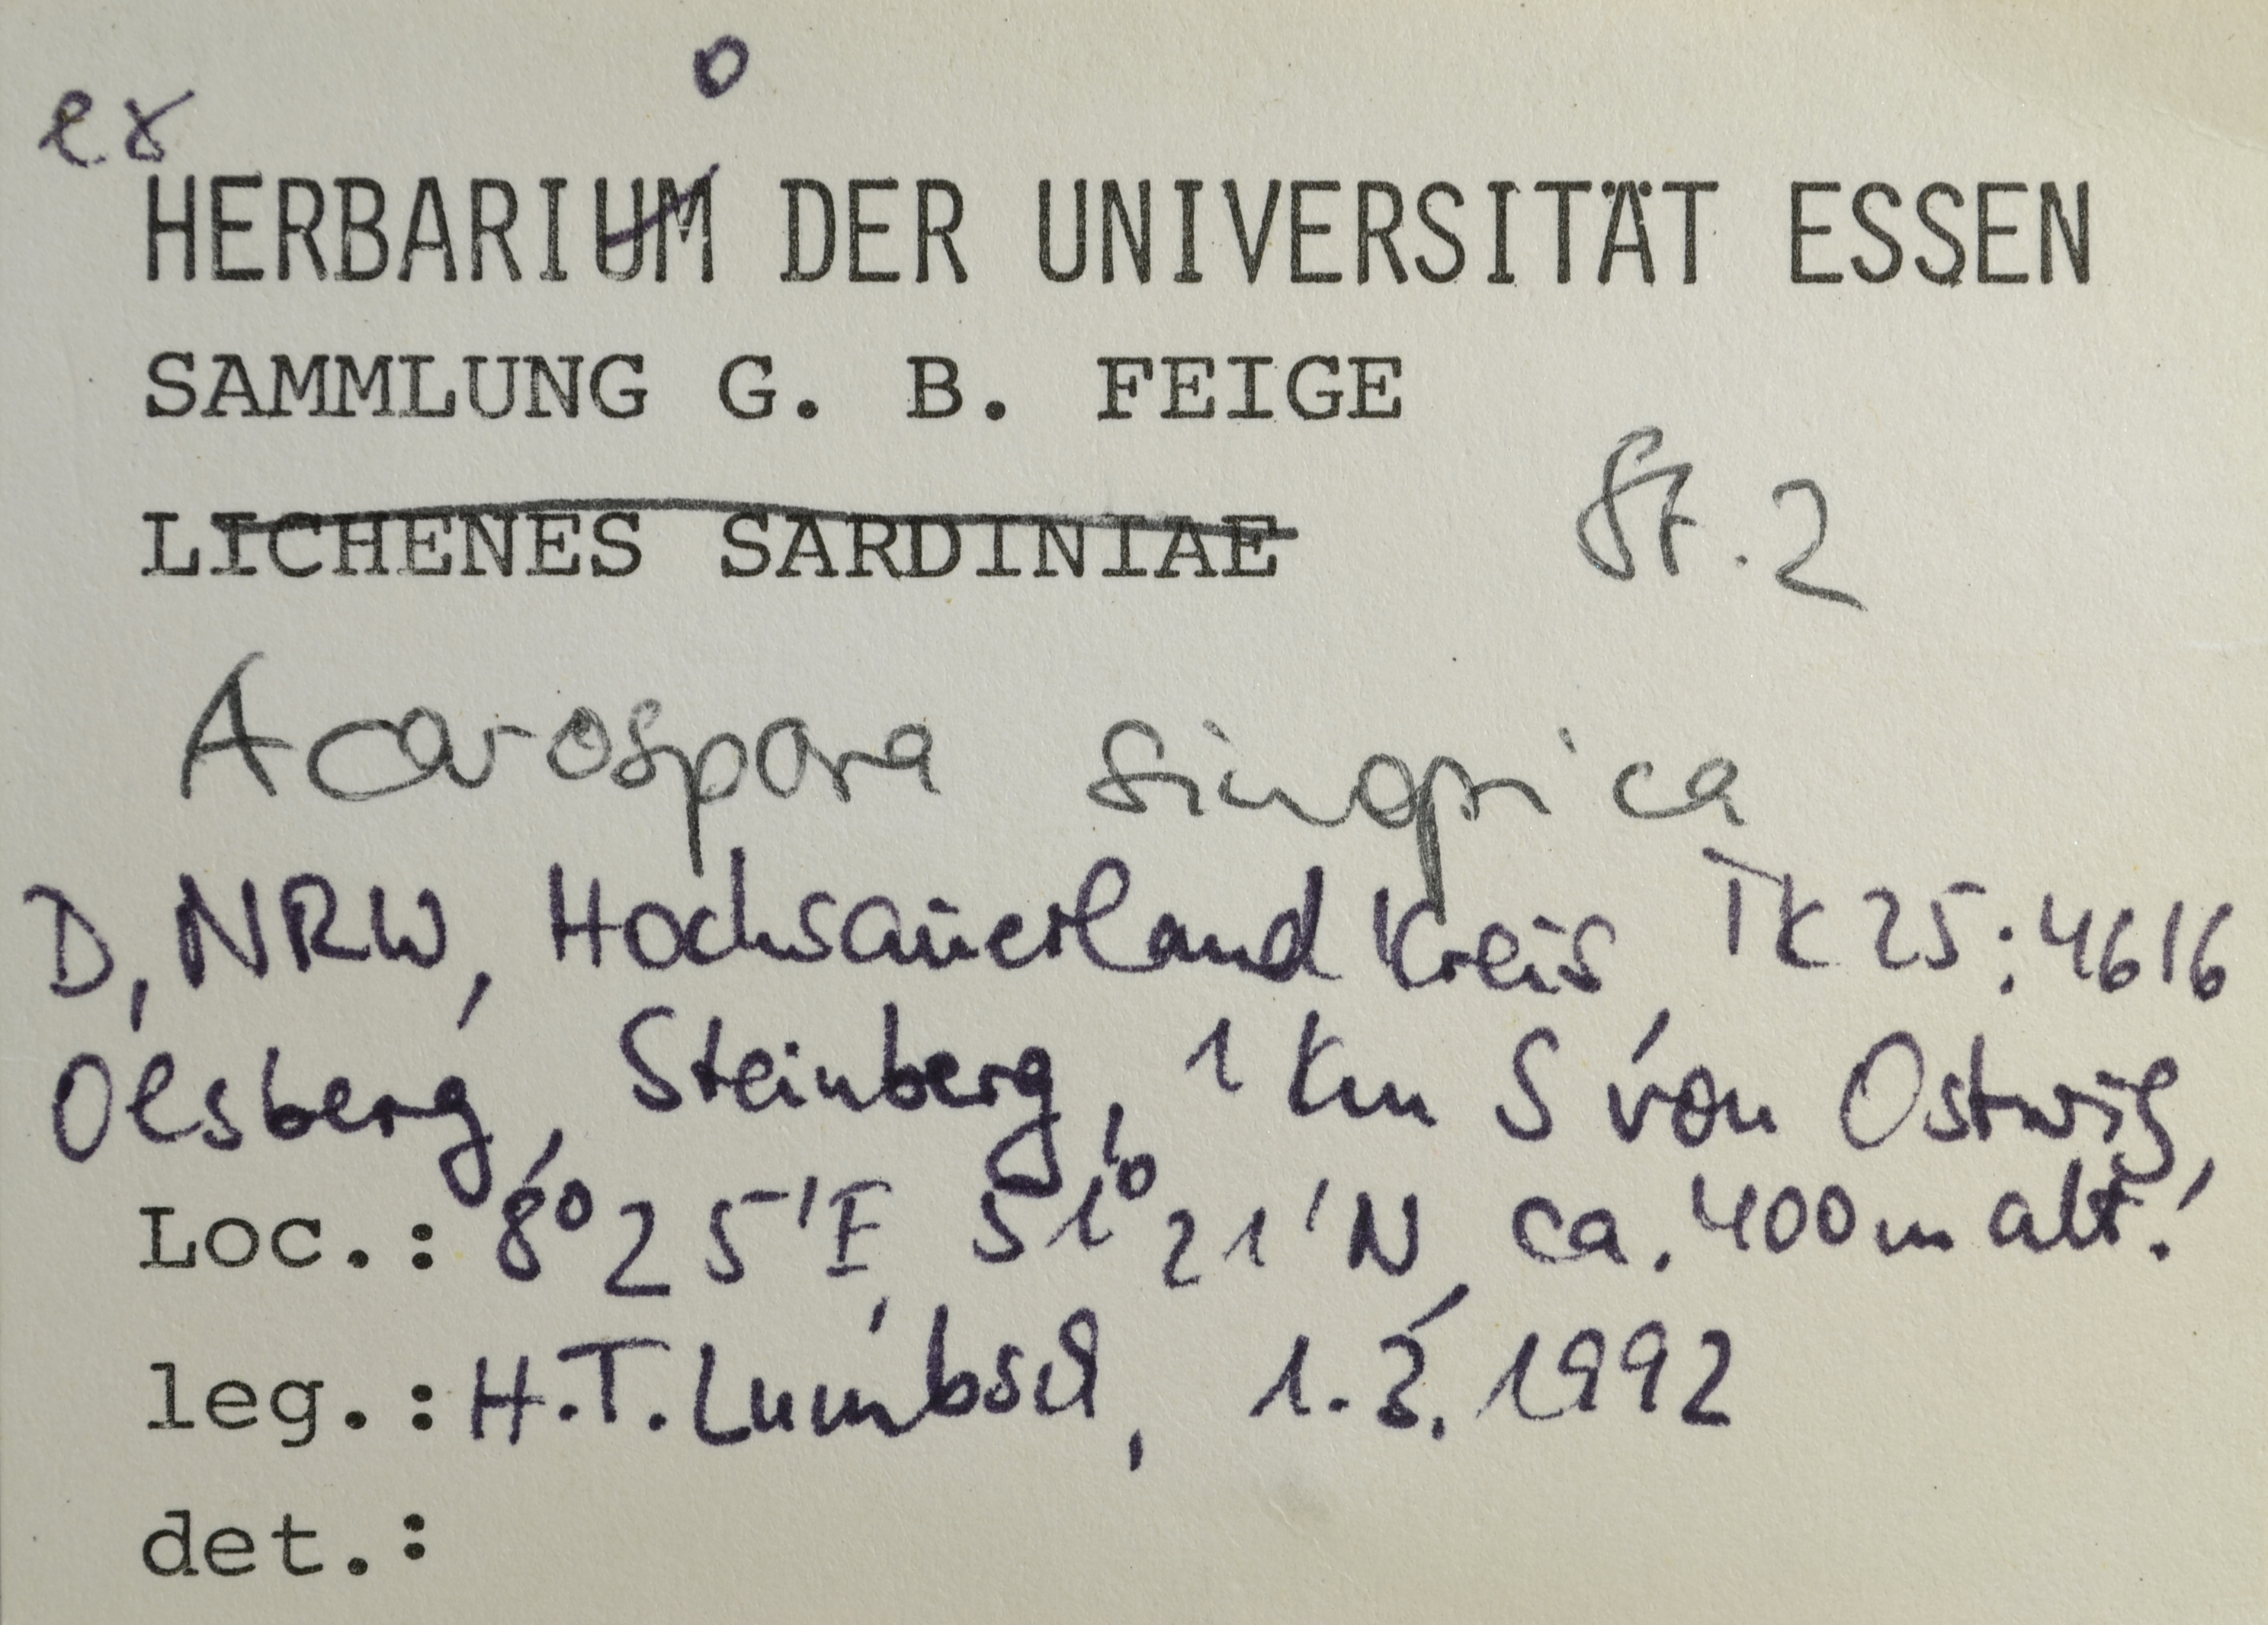 ex
HERBARIO DER UNIVERSITÄT ESSEN
SAMMLUNG G. B. FEIGE
LICHENES SARDINIAE
St. 2
Acarospora sinopica
D, NRW, Hochsauerland Kreis, TK 25: 4616
Olsberg, Steinberg, 1 km S von Ostwig,
Loc.: 8°25'E, 51°21'N, ca. 400m alt.
leg.: H.T. Lumbsch, 1.3.1992
det.: